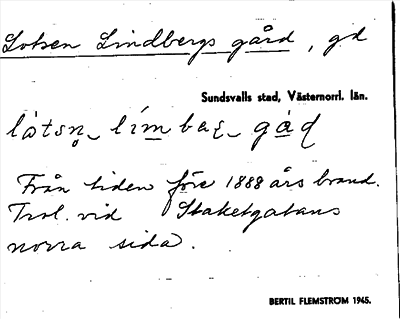 Lotsen Lindbergs gård, gd
Sundsvalls stad, Västernorrl. län.
Från tiden före 1888 års brand.
Trol. vid Staketgatans
norra sida.
BERTIL FLEMSTRÖM 1945.